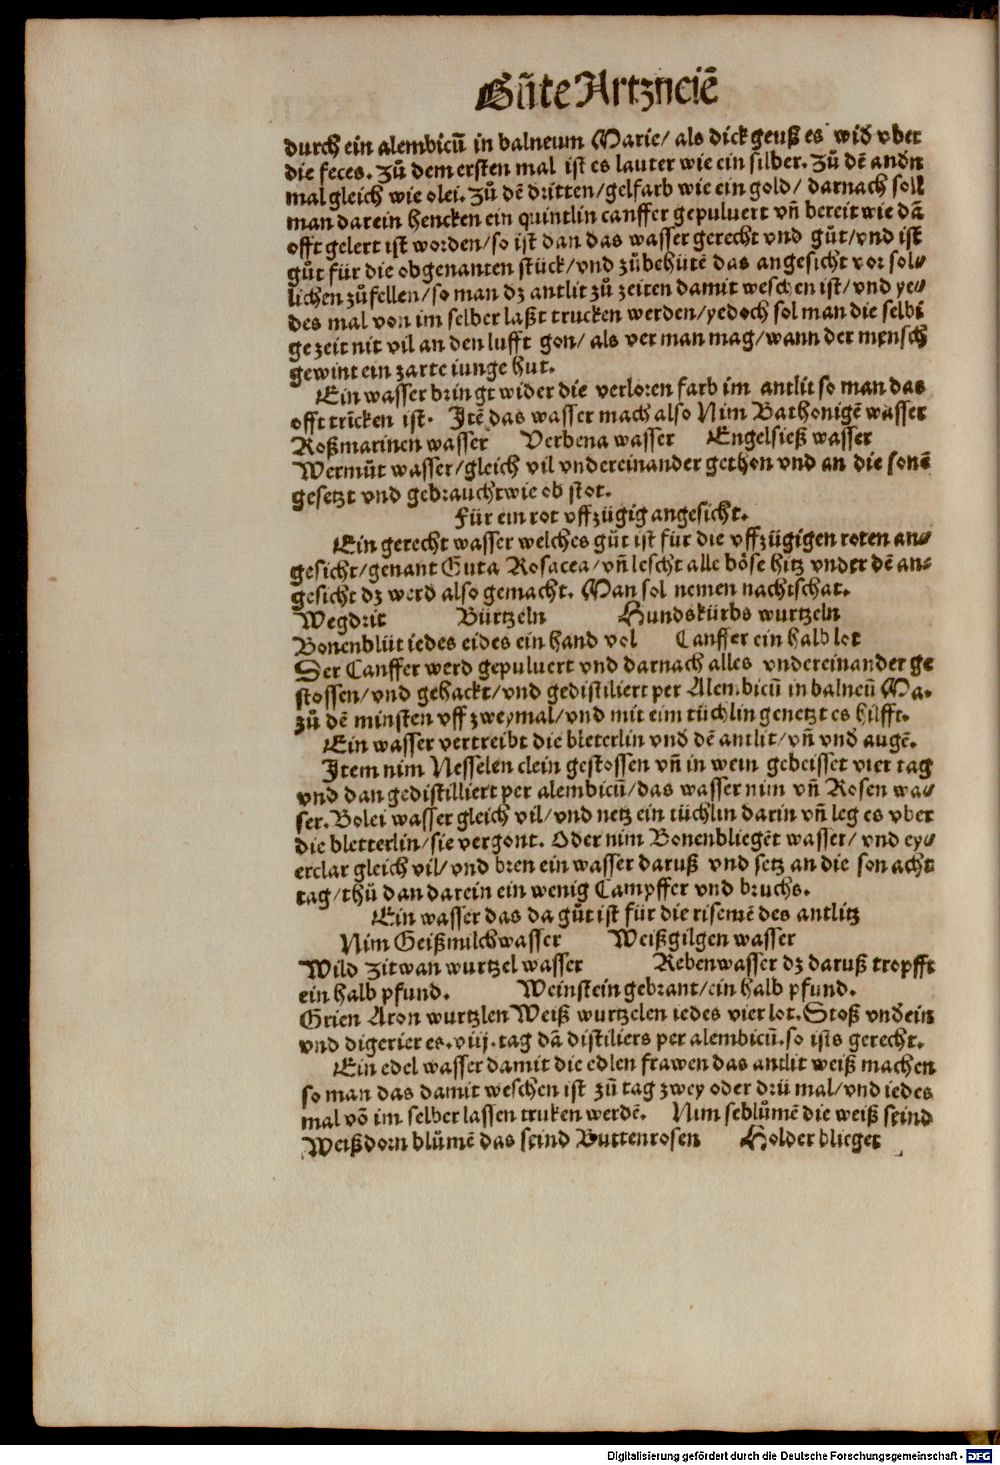 Gůte Artzneiē
durch ein alembicū in balneum Marie/ als dick geuß es wid vber
die feces. Zů dem ersten mal ist es lauter wie ein silber. Zů dē andn
mal gleich wie olei. Zů dē dritten/gelfarb wie ein gold/ darnach soll
man darein hencken ein quintlin canffer gepuluert vñ bereit wie dā
offt gelert ist worden/so ist dan das wasser gerecht vnd gůt/vnd ist
gůt für die obgenanten stück/vnd zůbehütē das angesicht vor sol⸗
lichen zůfellen/so man dz antlit zů zeiten damit weschen ist/vnd ye⸗
des mal von im selber laßt trucken werden/yedoch sol man die selbi
ge zeit nit vil an den lufft gon/ als ver man mag/wann der mensch
gewint ein zarte iunge hut.
Ein wasser bringt wider die verloren farb im antlit so man das
offt trīcken ist. Itē das wasser mach also Nim Bathonigē wasser
Roßmarinen wasser Verbena wasser Engelsieß wasser
Wermůt wasser/gleich vil vndereinander gethon vnd an die sonē
gesetzt vnd gebraucht wie ob stot.
Für ein rot vffzügig angesicht.
Ein gerecht wasser welches gůt ist für die vffzügigen roten an⸗
gesicht/genant Guta Rosacea/vñ lescht alle böse hitz vnder dē an⸗
gesicht dz werd also gemacht. Man sol nemen nachtschat.
Wegdrit Bürtzeln Hundskürbs wurtzeln
Bonenblüt iedes eides ein hand vol Canffer ein halb lot
Der Canffer werd gepuluert vnd darnach alles vndereinander ge
stossen/vnd gehackt/vnd gedistiliert per Alembicū in balneū Ma.
zů dē minsten vff zweymal/vnd mit eim tüchlin genetzt es hilfft.
Ein wasser vertreibt die bleterlin vnd dē antlit/vñ vnd augē.
Item nim Nesselen clein gestossen vñ in wein gebeisset vier tag
vnd dan gedistilliert per alembicū/das wasser nim vñ Rosen wa⸗
ser. Bolei wasser gleich vil/vnd netz ein tüchlin darin vñ leg es vber
die bletterlin/sie vergont. Oder nim Bonenbliegēt wasser/ vnd ey⸗
erclar gleich vil/vnd bren ein wasser daruß vnd setz an die son acht
tag/thů dan darein ein wenig Campffer vnd bruchs.
Ein wasser das da gůt ist für die risemē des antlitz
Nim Geißmilchwasser Weißgilgen wasser
Wild Zitwan wurtzel wasser Rebenwasser dz daruß tropfft
ein halb pfund. Weinstein gebrant/ein halb pfund.
Grien Aron wurtzlen Weiß wurtzelen iedes vier lot. Stoß vndein
vnd digerier es. viij. tag dā distiliers per alembicū. so ists gerecht.
Ein edel wasser damit die edlen frawen das antlit weiß machen
so man das damit weschen ist zů tag zwey oder drü mal/vnd iedes
mal vō im selber lassen truken werdē. Nim seblůmē die weiß seind
Weißdorn blůmē das seind Buttenrosen Holder blieget
Digitalisierung gefördert durch die Deutsche Forschungsgemeinschaft - DFG